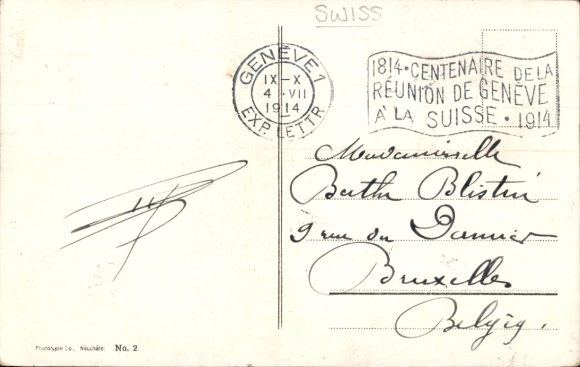 SWISS
GENÈVE 1
IX-X
4 · VII
1914
EXP. LETTR
1814 • CENTENAIRE DE LA
RÉUNION DE GENÈVE
À LA SUISSE • 1914
Mademoiselle
Berthe Blistin
9 rue du Damier
Bruxelles
Belgiq.
Phototypie Co., Neuchâtel. No. 2